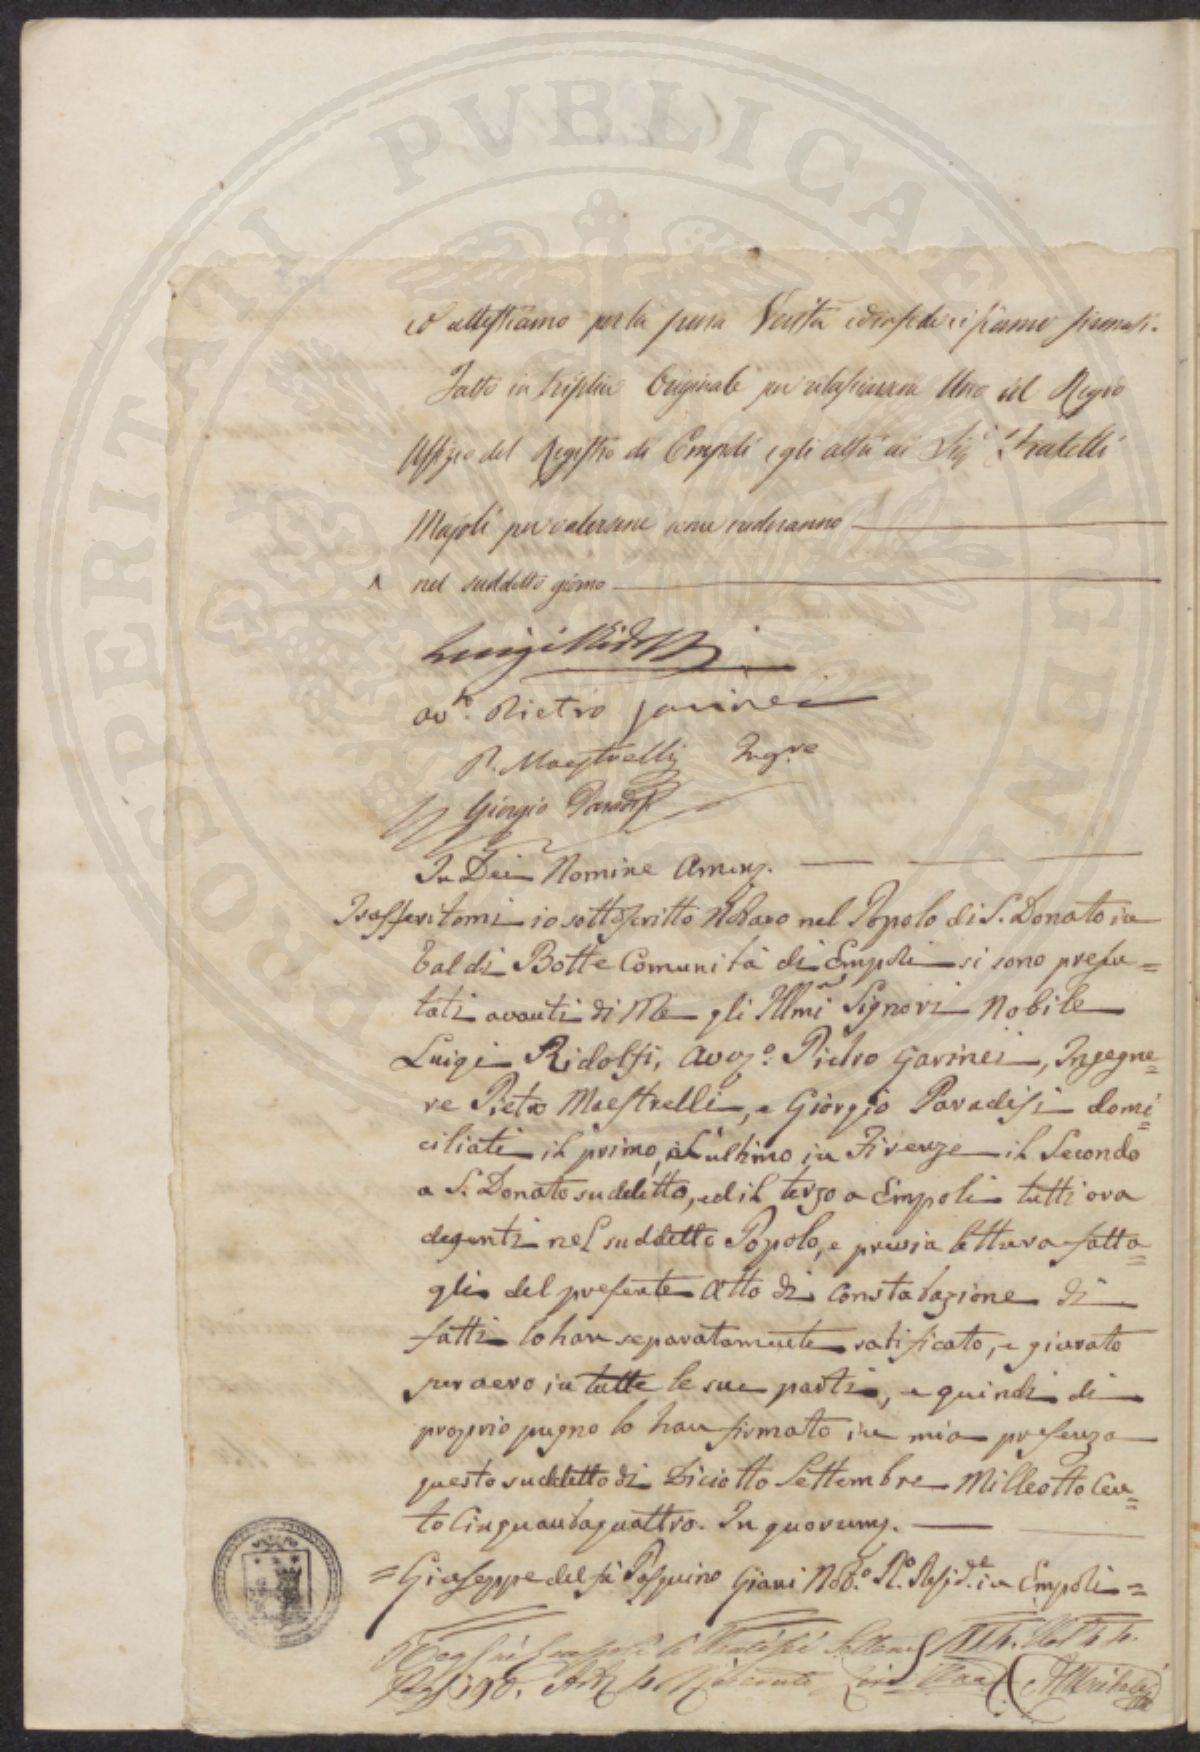 PROSPERITATI PVBLICAE AVGENDAE
ed attestiamo per la pura Verità ed in fede ci siamo firmati.
Fatto in triplice Originale per rilasciarne Uno al Regio
Uffizio del Registro di Empoli e gli altri ai Sig.i Fratelli
Majoli per valersene come crederanno
nel suddetto giorno
Luigi Ridolfi
Avo. Pietro Gavinei
P. Maestrelli Ingre
Giorgio Paradisi
In Dei Nomine Amen.
Trasferitomi io sottoscritto Notaro nel Popolo di S. Donato in
Val di Botte Comunità di Empoli si sono presen=
tati avanti di Me gli Illmi Signori Nobile
Luigi Ridolfi, Avvo. Pietro Gavinei, Ingegne=
re Pietro Maestrelli, e Giorgio Paradisi domi=
ciliati il primo, e l'ultimo in Firenze il Secondo
a S. Donato suddetto, ed il terzo a Empoli tutti ora
degenti nel suddetto Popolo, e previa lettura fatta=
gli del presente Atto di Constatazione di
fatti lo han separatamente ratificato, e giurato
per vero in tutte le sue parti, e quindi di
proprio pugno lo han firmato in mia presenza
questo suddetto dì Diciotto Settembre Milleotto Cen=
to Cinquantaquattro. In quorum.
=Giuseppe del fù Pasquino Giani Not.o R.o Resid.e in Empoli=